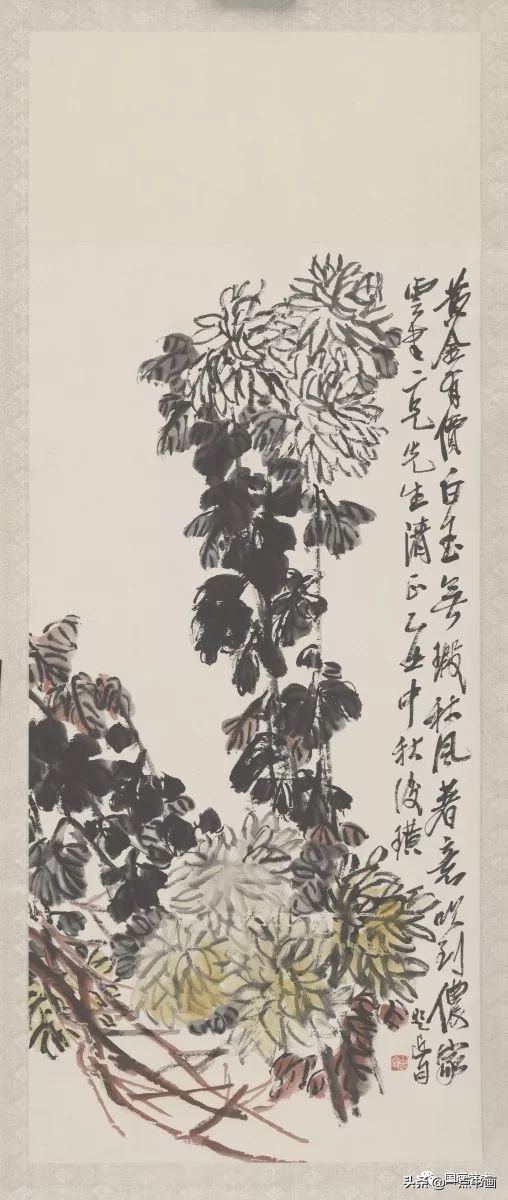 黄金有價白玉無瑕秋風著意吹到儂家
雲二兄先生清正乙丑中秋後璜
头条@一点书画